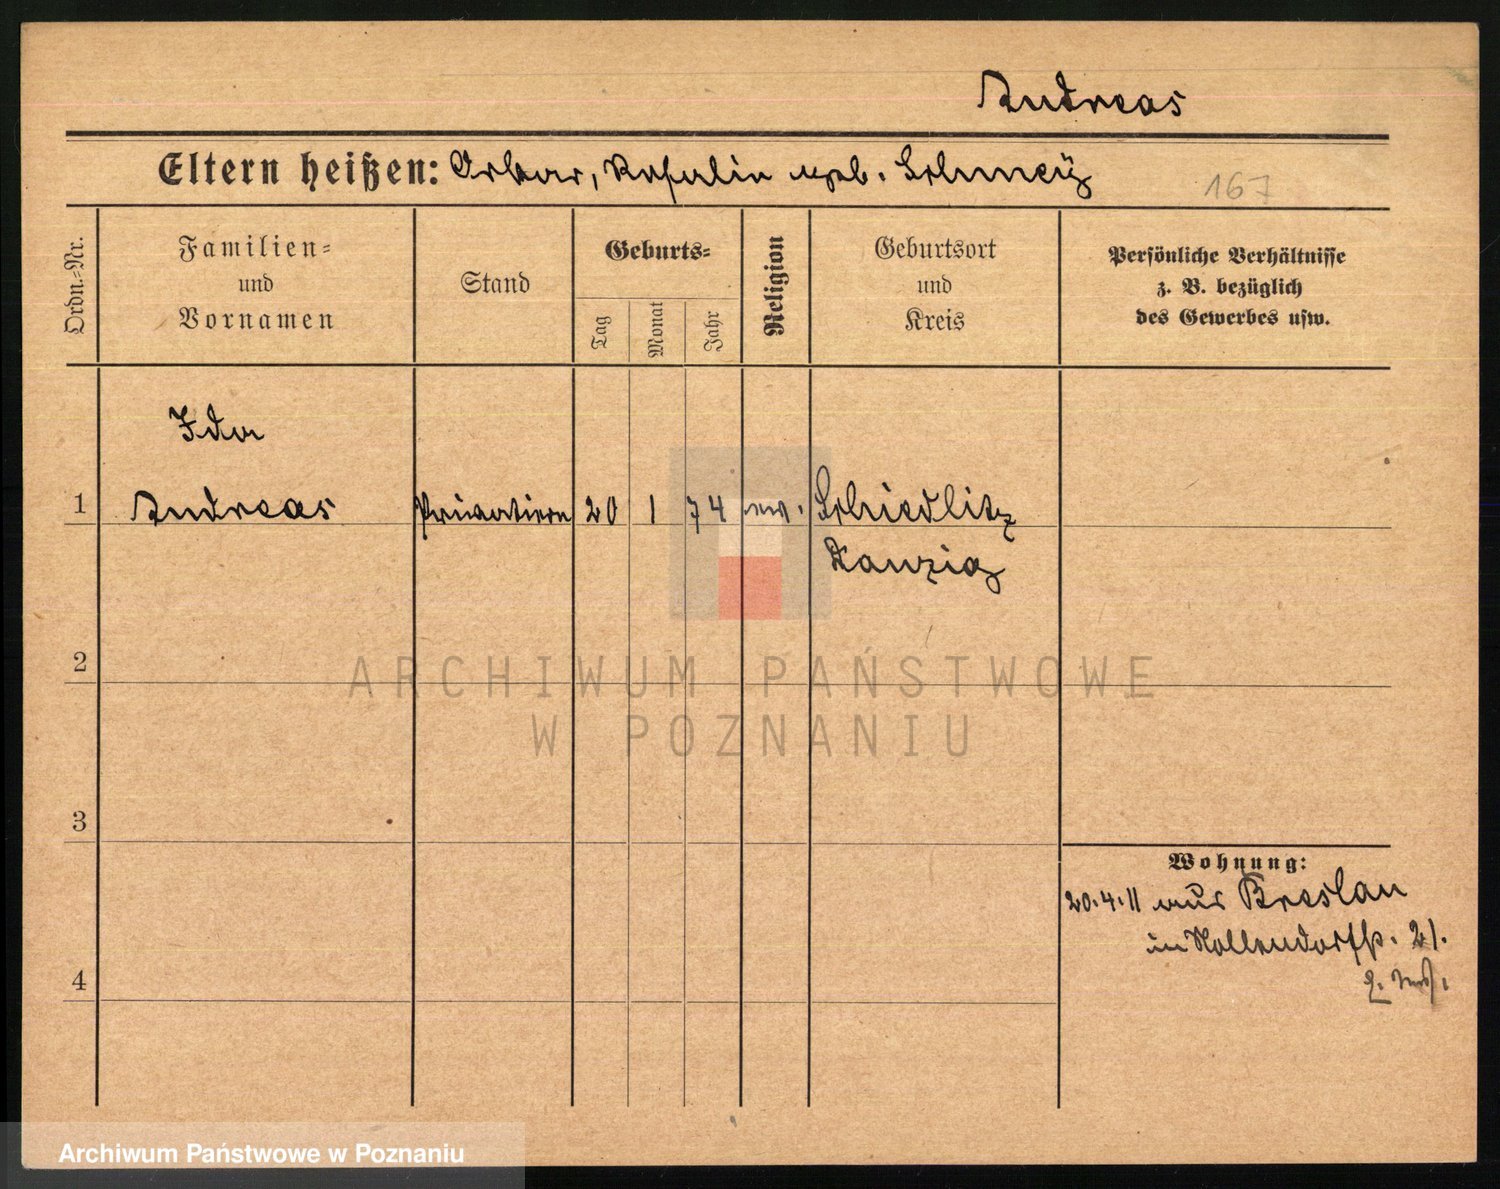 Andreas
Eltern heißen: Oskar, Rosalie geb.
167
Ordn.-Nr.
Familien-
und
Vornamen
Stand
Geburts-
Tag
Monat
Jahr
Religion
Geburtsort
und
Kreis
Persönliche Verhältnisse
z. B. bezüglich
des Gewerbes usw.
Ida
1 Andreas Privatiere 20 1 74 ev. Schiedlitz
Danzig
2
ARCHIWUM PAŃSTWOWE
W POZNANIU
3
Wohnung:
20.4.11 aus Breslau
in Nollendorfstr. 21.
4
Archiwum Państwowe w Poznaniu